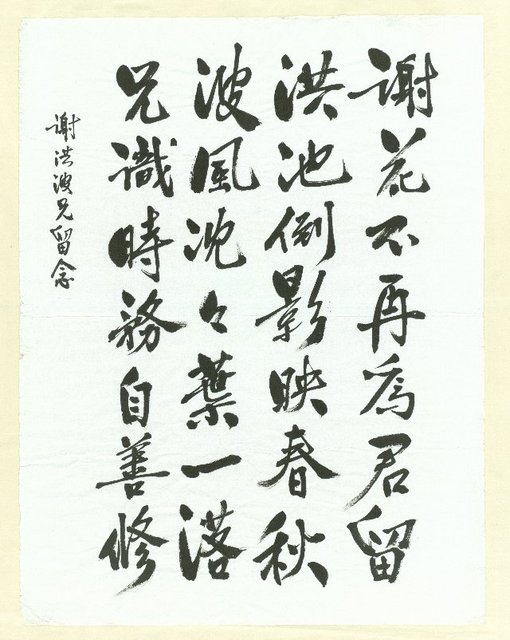 謝花不再為君留
洪池倒影映春秋
波風沈々葉一落
兄識時務自善修
謝洪波兄留念